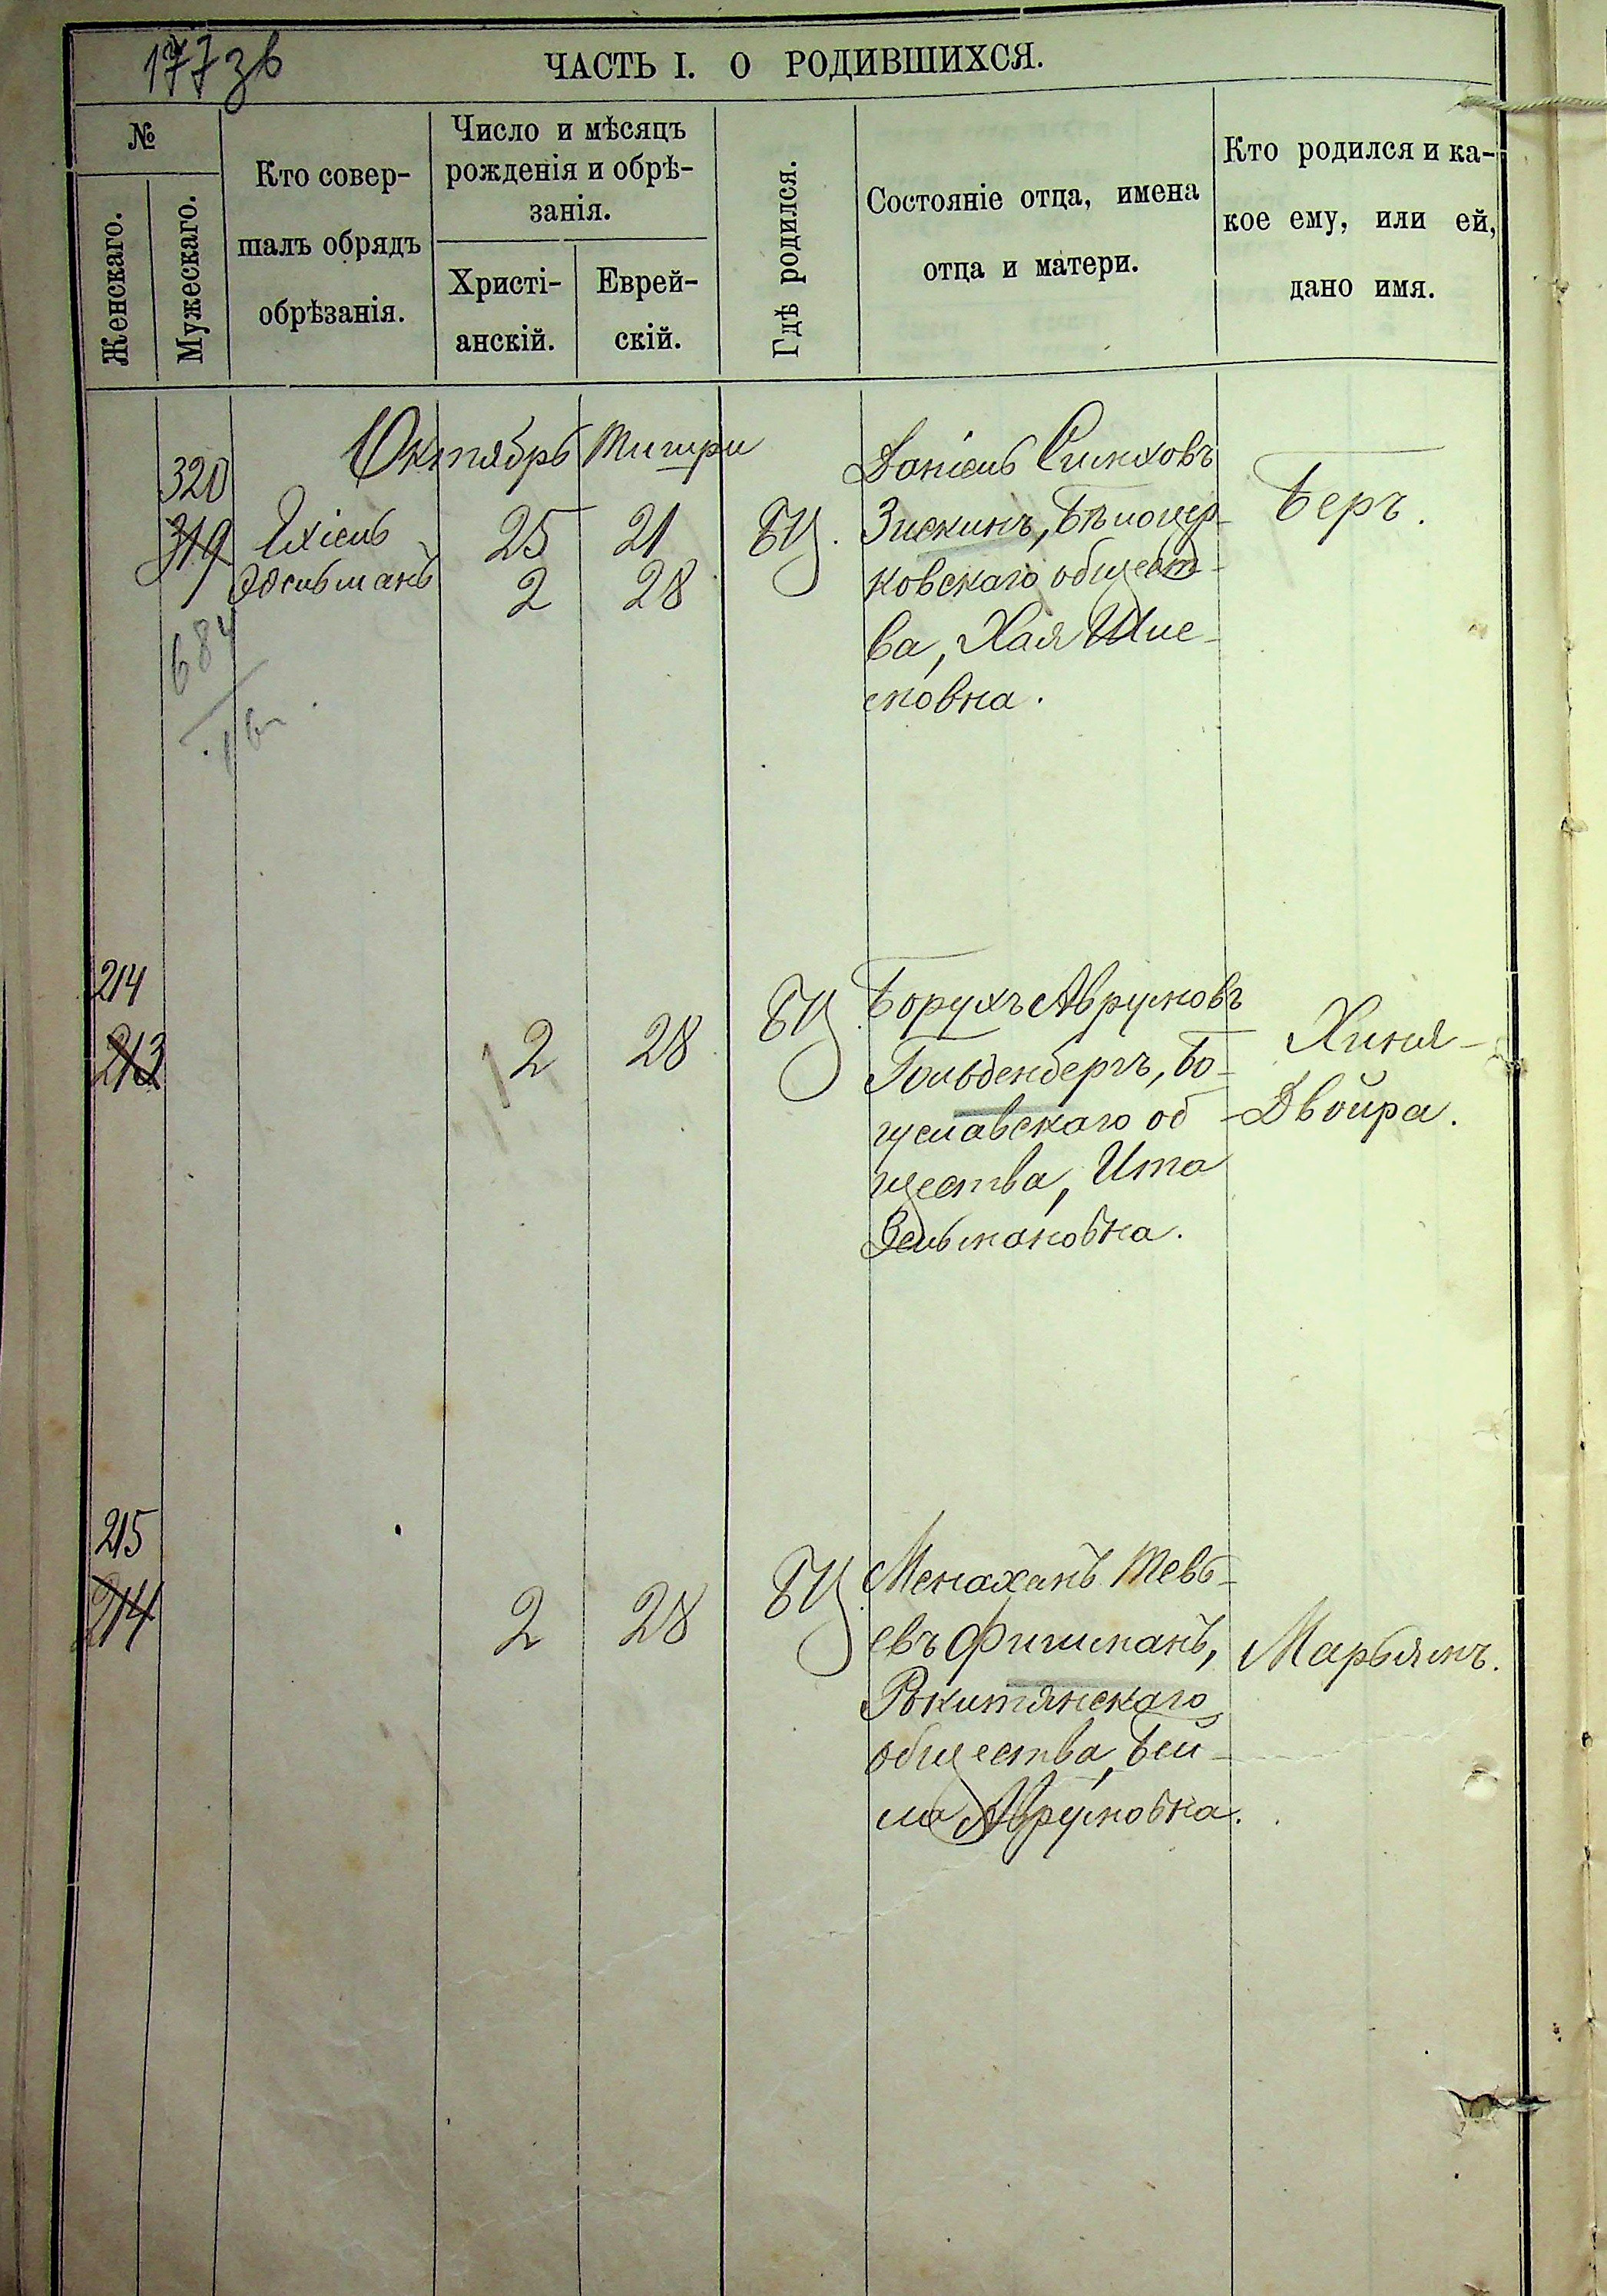 177 зв
ЧАСТЬ I. О РОДИВШИХСЯ.
№
Женскаго.
Мужескаго.
Кто совер-
шалъ обрядъ
обрѣзанія.
Число и мѣсяцъ
рожденія и обрѣ-
занія.
Христі-
анскій.
Еврей-
скій.
Гдѣ родился.
Состояніе отца, имена
отца и матери.
Кто родился и ка-
кое ему, или ей,
дано имя.
Октябрь Тишри
320
319
Ихіель
Эдельманъ
25 21
2 28
БЦ.
Даніель Симховъ
Зискинъ, Бѣлоцер-
ковскаго общест-
ва, Хая Шле-
мовна.
Беръ.
684
214
213
2 28
БЦ.
Борухъ Аврумовъ
Гольденбергъ, Бо-
гуславскаго об-
щества, Ита
Зельмановна.
Хиня-
Двойра.
215
214
2 28
БЦ.
Менахемъ Тевь-
евъ Фишманъ,
Рокитянскаго
общества, Бей-
ла Аврумовна.
Марьямъ.